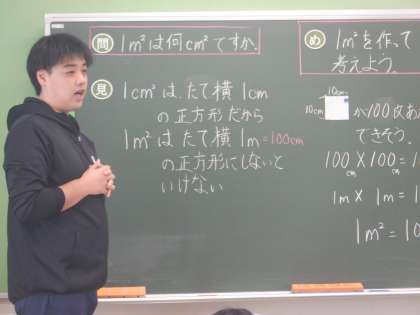 問 1m²は何cm²ですか.
見 1cm²は、たて横1cm
の正方形だから
1m²は、たて横1m=100cm
の正方形にしないと
いけない
め 1m²を作って
考えよう.
10cm
10cm
が100
できそう.
100×100=1
cm cm
1m×1m=1
1m²=10